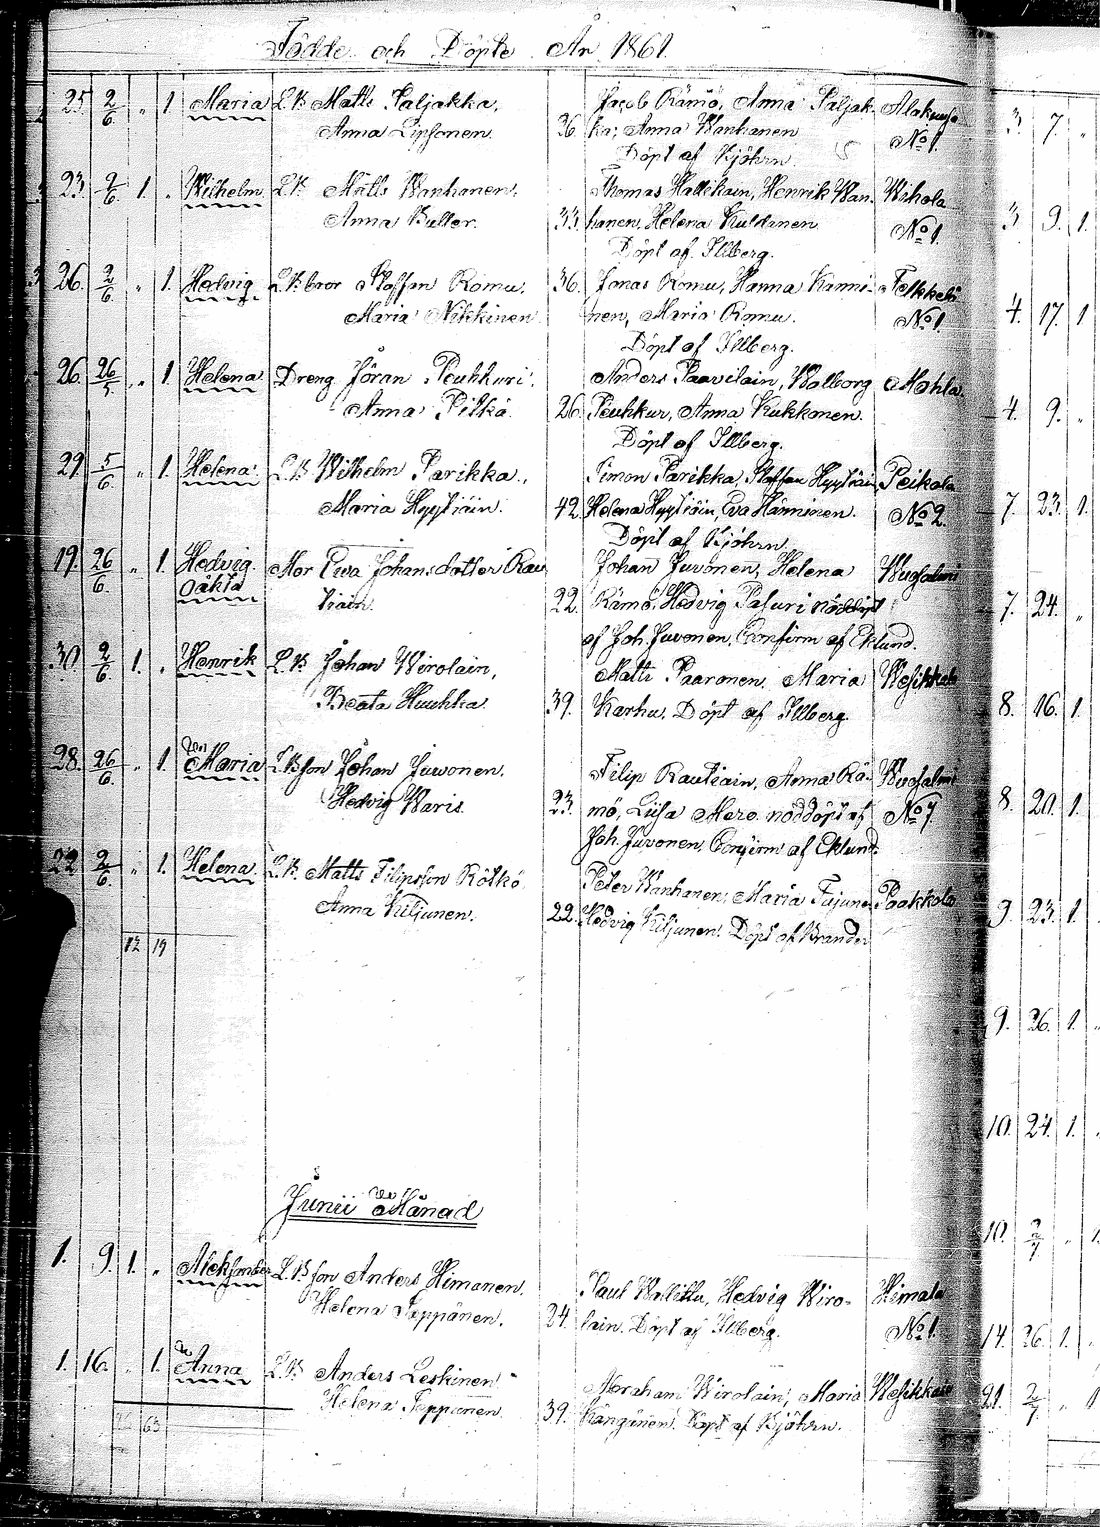 Födde och Döpte År 1861.
25. 2/6. " 1. Maria L.B. Matts Paljakka, Jacob Rämö, Anna Paljak-
Anna Lipsonen. 36. ka; Anna Wanhanen No 1.
Döpt af Björn.
23. 2/6 1. " Wilhelm L.B. Matts Wanhanen. Thomas Hallikain, Henrik Wan-
Anna Buller. 33. hanen, Helena Kuldanen No 1.
Döpt af Illberg.
26. 2/6. " 1. Hedvig L.B. bror Staffan Romu, 36. Jonas Romu, Hanna Kanni-
Maria Nikkinen nen, Maria Romu. No 1.
Döpt af Illberg.
26. 26/5 " 1. Helena Dreng Jöran Peuhkuri, Anders Paavilain, Walborg
Anna Pitkä. 26. Peuhkur, Anna Kukkonen.
Döpt af Illberg.
29. 5/6 " 1. Helena L.B. Wilhelm Parikka, Simon Parikka, Staffan Hyytiäin, Peikola
Maria Hyytiäin. 42. Helena Hyytiäin, Eva Hänninen. No 2.
Döpt af Björn.
19. 26/6. " 1. Hedvig Mor Ewa Johansdotter Rau Johan Juvonen, Helena
oäkta tiain. 22. Rämö, Hedvig Pasuri nöddöpt
af Joh. Juvonen, Confirm af Eklund.
30. 2/6. 1. " Henrik L.B. Johan Wirolain, Matts Paaronen, Maria
Beata Huuhka. 39. Karhu. Döpt af Illberg.
28. 26/6 " 1. Maria L.B. son Johan Juvonen. Filip Rautiain, Anna Rä-
Hedvig Waris. 23. mö, Liisa Mero. nöddöpt af No 7.
Joh. Juvonen, Confirm af Eklund.
22 2/6. " 1. Helena L.B. Matts Filipsson Rötkö Peter Wanhanen, Maria Paakkola
Anna Kiljunen. 22. Hedvig Kiljunen. Döpt af Brander
12 19
Junii Månad
1. 9. 1. " L.B. son Anders Himanen. Paul Wallittu, Hedvig Wiro- Himala
Helena Seppänen. 24. lain. Döpt af Illberg. No 1.
1. 16. " 1. Anna L.B. Anders Leskinen Abraham Wirolain, Maria
Helena 39. Kangänen. Döpt af Björn.
63
3. 7. "
3. 9. 1.
4. 17. 1
4. 9. "
7. 23. 1.
7. 24. "
8. 16. 1.
8. 20. 1.
9. 23. 1.
9. 26. 1.
10. 24. 1.
10. 2/7 "
14. 26. 1.
21. 2/7 "